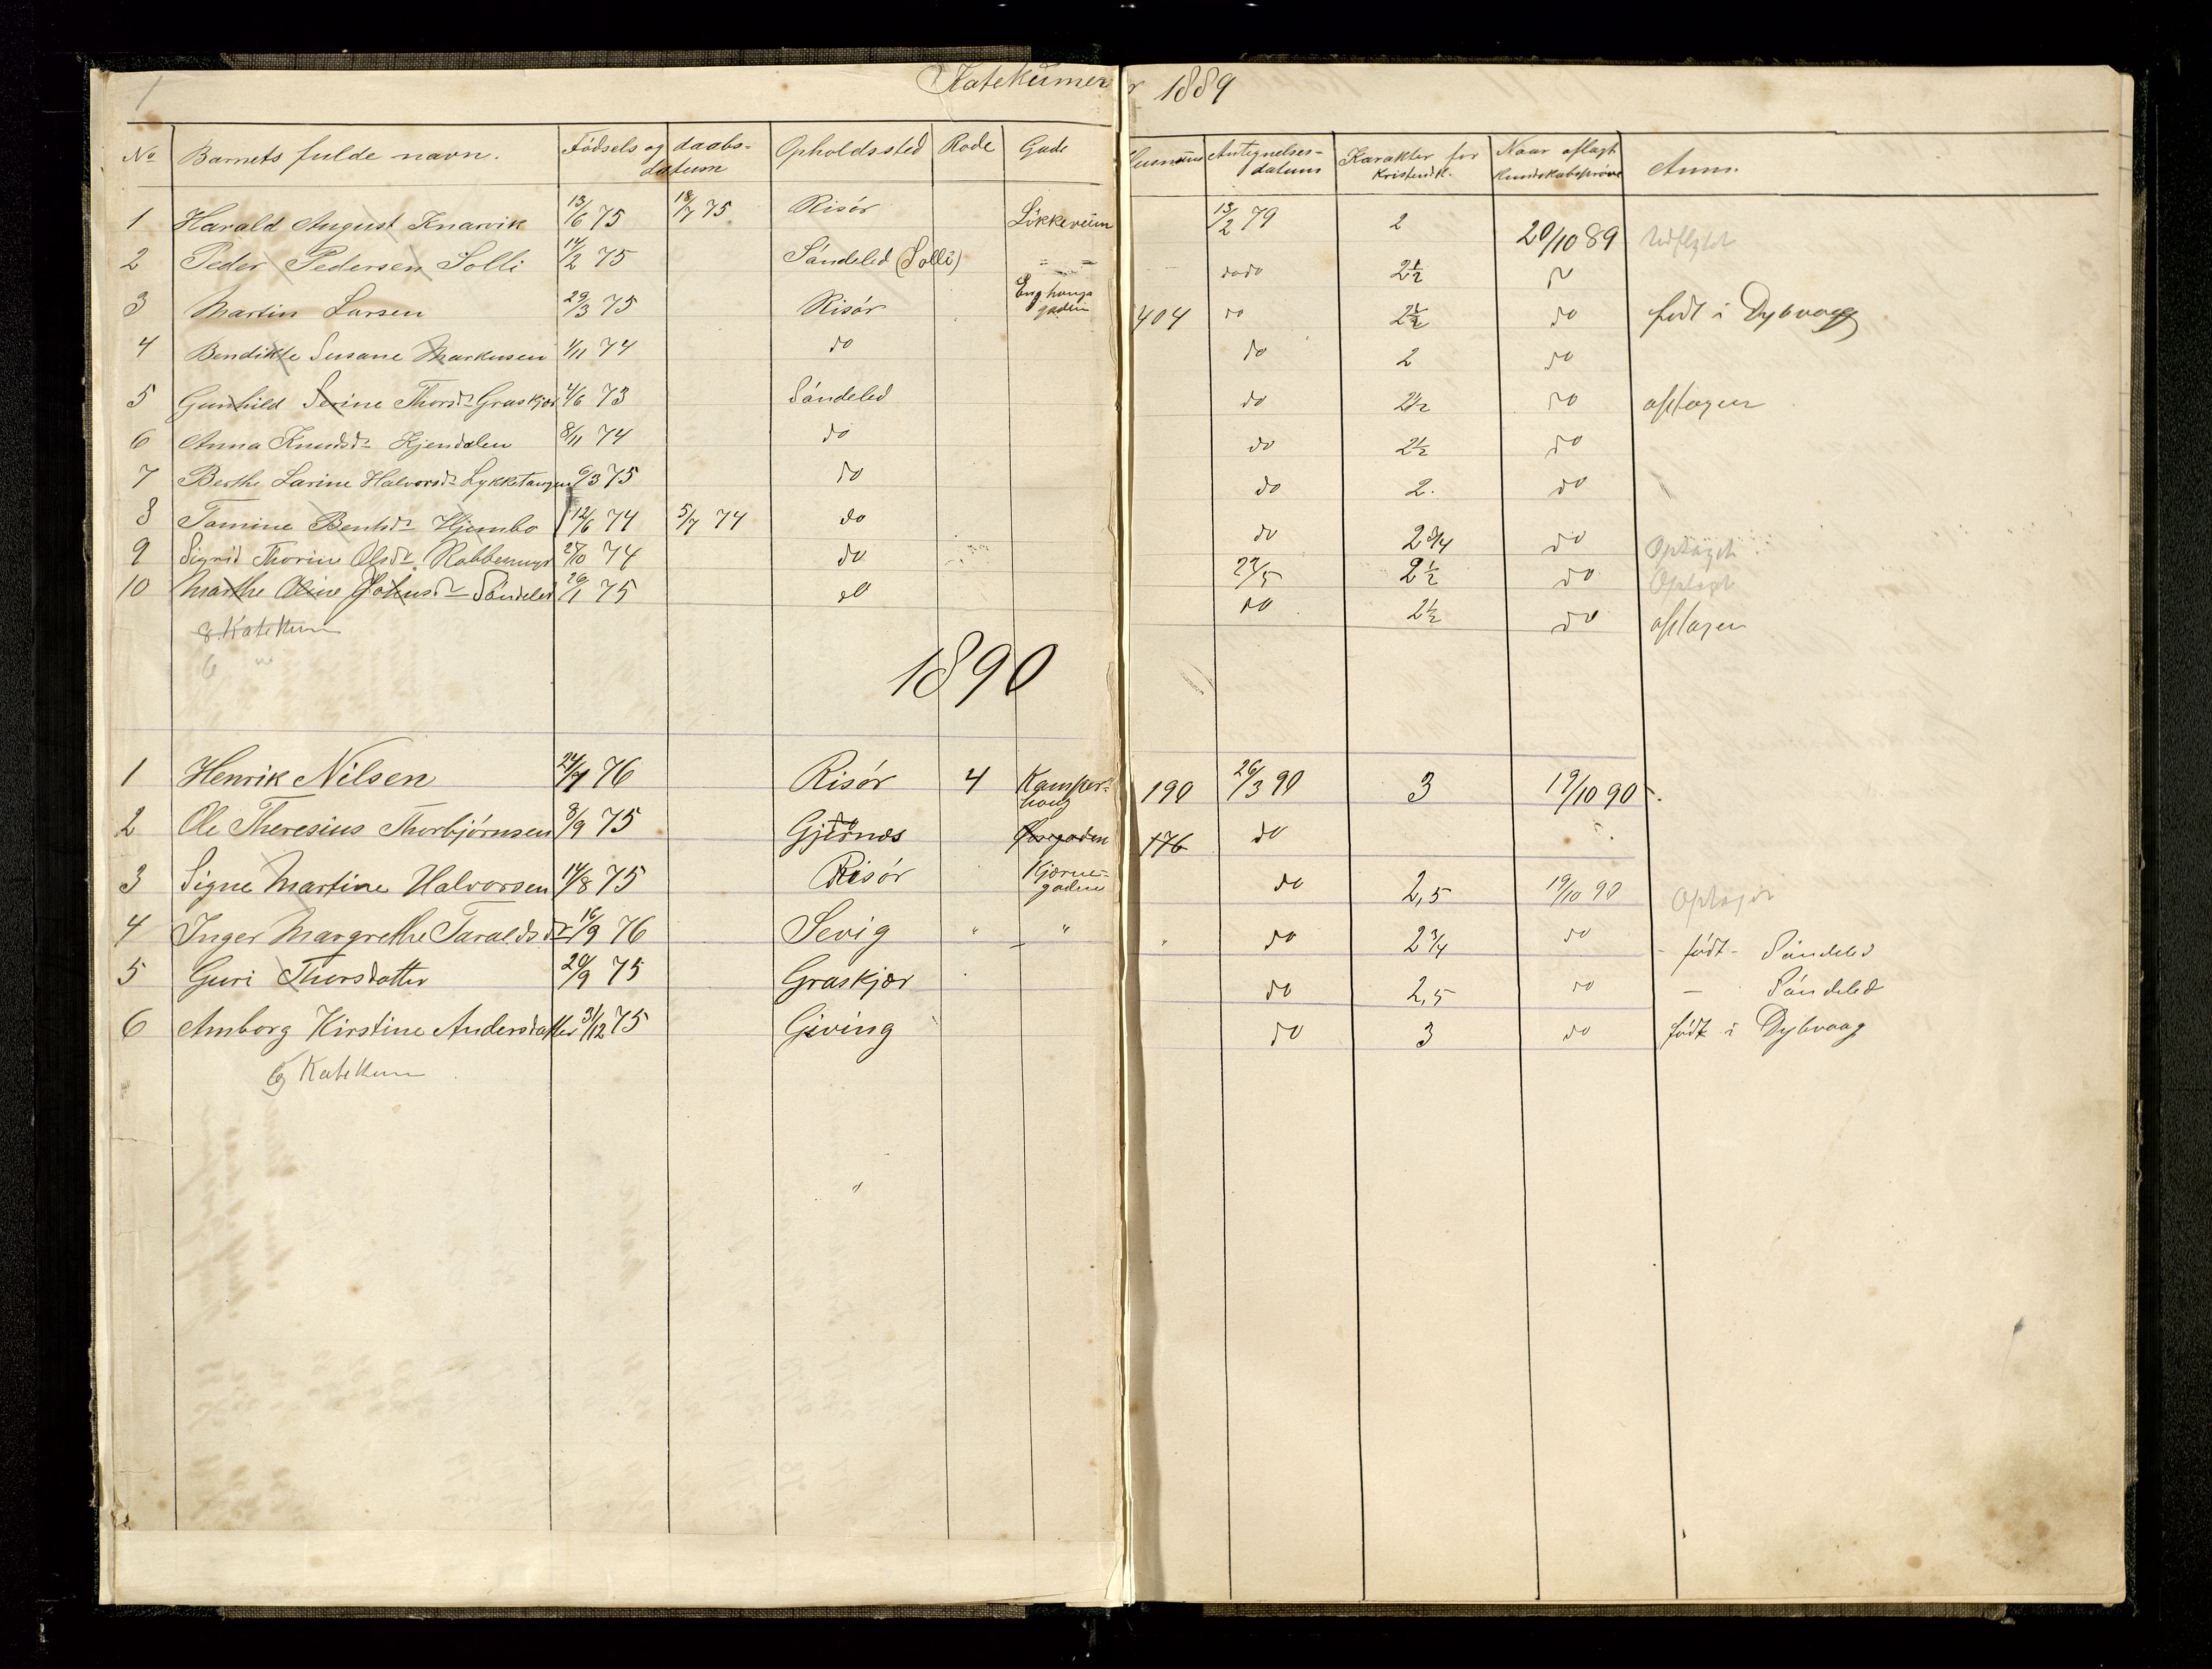 1
Katekumener 1889
No Barnets fulde navn. Födsels og daabs-datum Opholdssted Rode Gade Husnum Antegnelses-datum Karakter for Kristendk. Naar aflagt Kundskabsprøve Anm.
1 Harald August Knarvik 13/6 75 18/7 75 Risör 13/2 79 2 20/10 89 Udflyttet
2 Peder Pedersen Solli 14/2 75 Söndeled (Solli) " " dodo 2½
3 Martin Larsen 29/3 75 Risör 404 do 2½ do født i Dybvaag
4 Bendikte Susane Markusen 1/11 74 do do 2 do
5 Gunhild Serine Thorsdr Graskjær 4/6 73 Söndeled do 2½ do optagen
6 Anna Knudsdr Hjendalen 8/11 74 do do 2½ do
7 Berthe Larine Halvorsdr Lykketangen 6/3 75 do do 2. do
8 Tomine Bentsdr Hjembo 12/6 74 5/7 74 do do 2¾ do Optaget
9 Sigrid Thorine Olsdr Robbesmyr 27/10 74 do 22/5 2½ do Optaget
10 Marthe Oline Johnsdr Söndeled 26/1 75 do do 2½ do optagen
8 Katekum
6 "
1890
1 Henrik Nilsen 24/7 76 Risör 4 Kamperhoug 190 26/3 90 3 19/10 90
2 Ole Theresius Thorbjörnsen 8/9 75 Gjernes 176 do
3 Signe Martine Halvorsen 14/8 75 Risör Kjærnegaden do 2,5 19/10 90 Optaget
4 Inger Margrethe Taraldsdr 16/9 76 Sevig " " " do 2¾ do - født - Söndeled
5 Guri Thorsdatter 20/9 75 Graskjær do 2,5 do - Söndeled
6 Amborg Kirstine Andersdatter 31/12 75 Giving do 3 do født i Dybvaag
6 Katekum